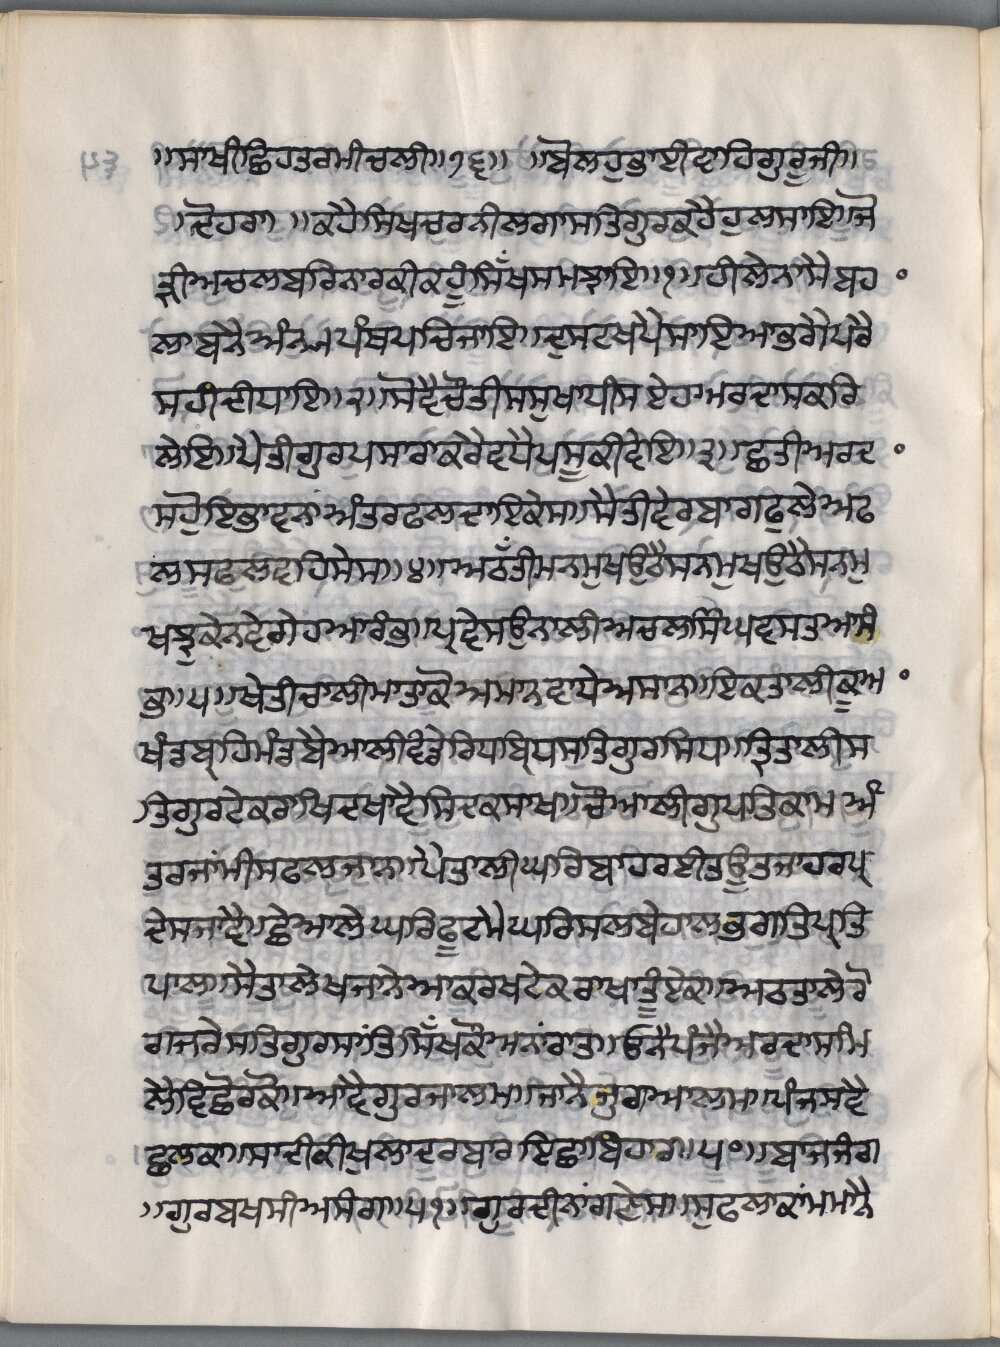 ॥ਸਾਖੀਛਿਹਤਰਮੀਚਲੀ॥੭੬॥ ॥ਬੋਲਹੁਭਾਈਵਾਹਿਗੁਰੂਜੀ॥
॥ਦੋਹਰਾ ॥ਕਹੈਸਿਖਚਰਨੀਲਗਾਸਤਿਗੁਰਕਹੈਹੁਲਸਾਇ॥ਜੋ
ੜੀਅਚਲਬਰਿਨਾਰਕੀਕਹੂੰਸਿੱਖਸਮਝਾਇ॥੧॥ਹੀਲੇਨਾਮੈਬਹ
ਲਾਬਨੈਅੰਨਜਪੰਥਪਚਿਜਾਇ॥ਦੁਸਟਖਪੈਸਾਇਆਭਗੈਪਰੈ
ਸਹੀਦੀਪਾਇ॥੨॥ਸੋਵੈਚੌਤੀਸਸੁਖਾਪੀਸਏਹਾਅਰਦਾਸਕਰਿ
ਲੇਇ॥ਪੈਤੀਗੁਰਪਸਾਰਾਕਰੈਵਧੈਪਸੂਕੀਦੇਇ॥੩॥ਛਤੀਅਰਦ
ਸਹੋਇਭਾਵਨਾਅੰਤਰਫਲਦਾਇਕੇਸ॥ਸੈਤੀਦੇਰਬਾਗਫੁਲੇਅਫ
ਲਸੁਫਲੁਵਹਿਸੇਸ॥੪॥ਅਠੱਤੀਸਨਮੁਖਊਠੈਸਨਮੁਖਊਠੈਸਨਮੁ
ਖਝੁਕੇਨਦੇਗੇਹਆਰੰਭ॥ਪ੍ਰਦੇਸਊਨਾਲੀਅਚਲਸਿੰਘਦਸਤਆਸੰ
ਭ॥੫॥ਖੇਤੀਚਾਲੀਮਾਤਕੋਅਸਾਨਦਾਧੇਅਸਾਨ॥ਇਕਤਾਲੀਕਾਮ
ਖੰਡਬ੍ਰਹਿਮੰਡਬੈਆਲੀਵਿੰਡੇਰਿਧਿਬ੍ਰਿਧਸਤਿਗੁਰਸਿਧ॥ਤ੍ਰਿਤਾਲੀਸ
ਤਿਗੁਰਟੇਕਰਾਖਿਦਖਾਵੈਸਿਦਕਸਾਖ॥ਚੌਆਲੀਗੁਪਤਿਕਾਮਅੰ
ਤਰਜਾਂਮੀਸਫਲਜਾਨ॥ਪੈਤਾਲੀਘਰਿਬਾਹਰਈਤਊਤਜਾਹਰਪ੍ਰ
ਦੇਸਜਾਵੈ॥ਛੇਆਲੇਘਰਿਫੂਟਮੈਘਰਿਸਲਬੇਹਾਲਭਗਤਿਪ੍ਰਤਿ
ਪਾਲ॥ਸੈਤਾਲੇਖਜਾਨੇਆਕਰਖਟੇਕਰਾਖਾਤੂੰਏਕ॥ਅਠਤਾਲੇਰੋ
ਗਜਰੇਸਤਿਗੁਰਸਾਂਤਿਸਿੱਖਕੌਅਨਾਂਰਾਤਾ॥ਓਨੈਪੰਜੈਅਰਦਾਸਸੀਮ
ਲੈਵਿਛੋਰਕੋ॥ਆਵੈਗੁਰਜਾਲਮ॥ਜਾਨੈਜੁਗਆਲਮ॥ਪੰਜਸਵੈ
ਛਲਕਾ॥ਸਾਦੀਕੀਖੁਲਾਦਰਬਾਰਇਛਾਬਿਹਾਰ॥੫੦॥ਬਾਜਜੰਗ
॥ਗੁਰਬਖਸੀਅਸੰਗ॥੫੧॥ਗੁਰਦੀਨਾਂਗਣੇਸ॥ਸੁਫਲਕਾਂਮਮਾਨੈ